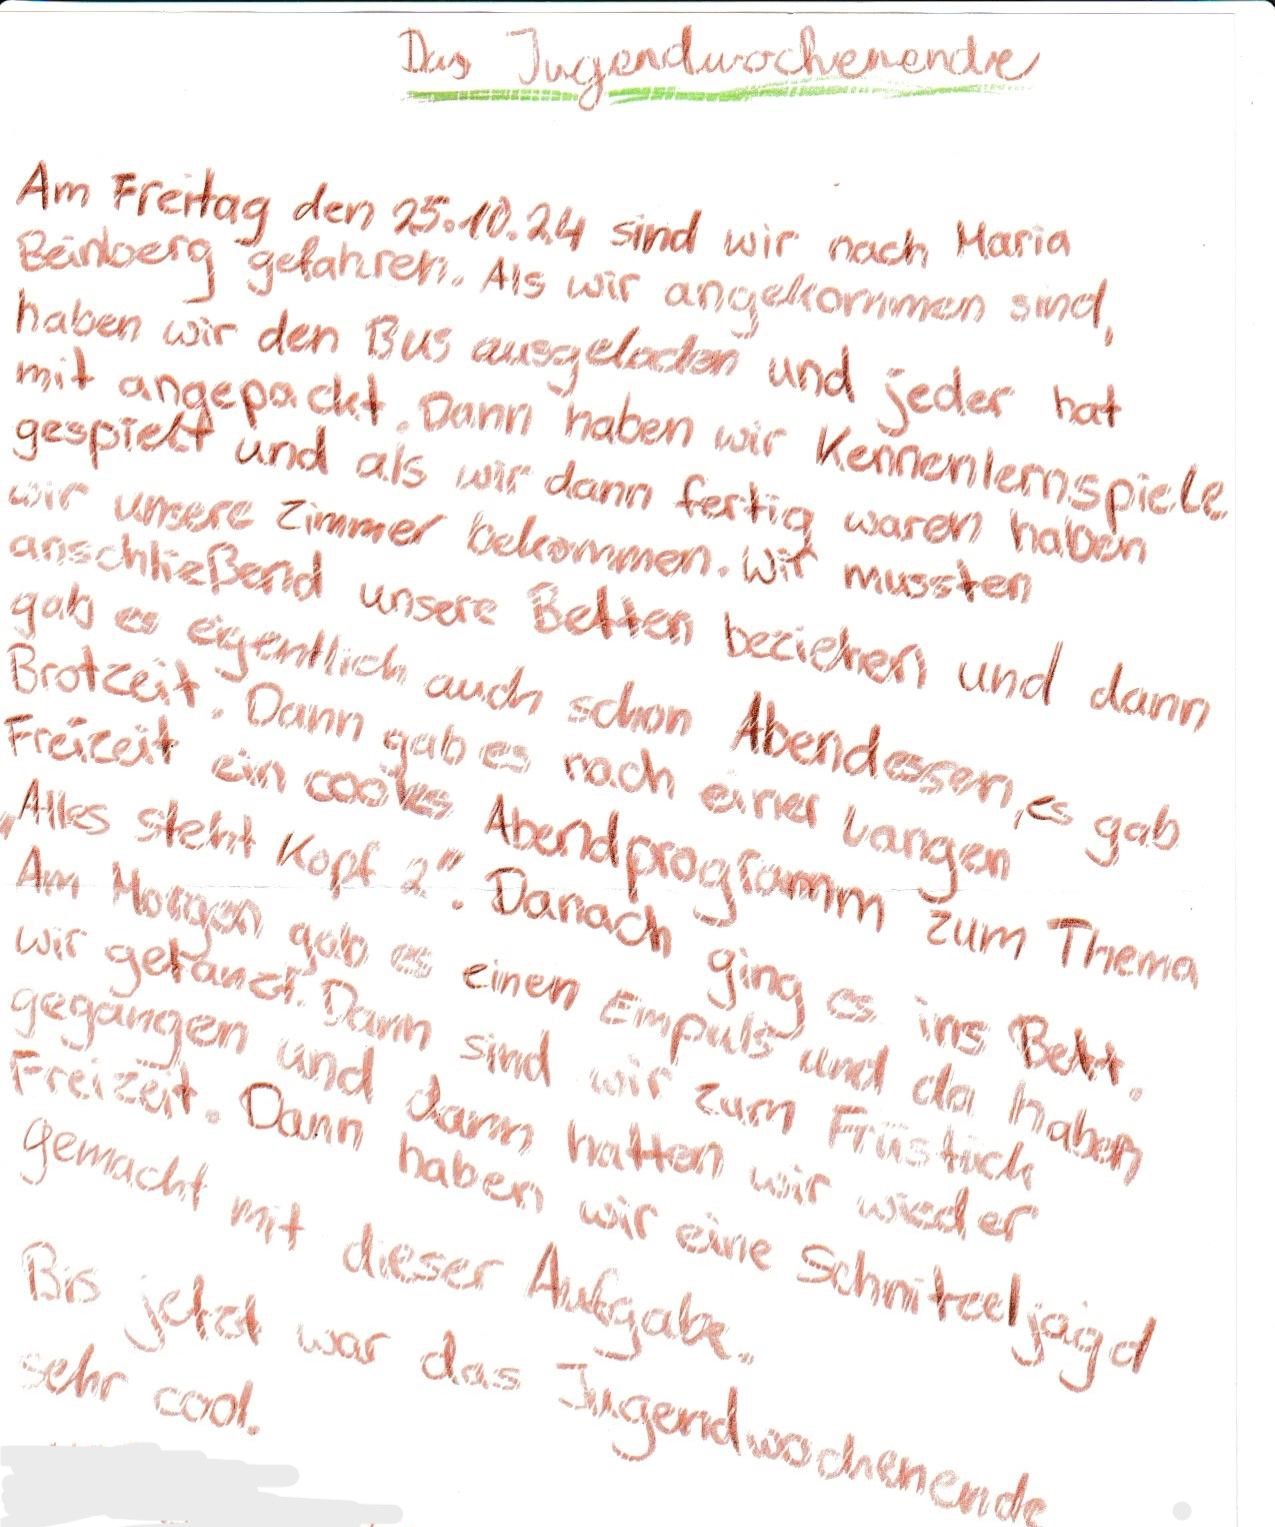 Das Jugendwochenende
Am Freitag den 25.10.24 sind wir nach Maria
Beinberg gefahren. Als wir angekommen sind,
haben wir den Bus ausgeladen und jeder hat
mit angepackt. Dann haben wir Kennenlernspiele
gespielt und als wir dann fertig waren haben
wir unsere Zimmer bekommen. Wir mussten
anschließend unsere Betten beziehen und dann
gab es eigentlich auch schon Abendessen, es gab
Brotzeit. Dann gab es nach einer langen
Freizeit ein cooles Abendprogramm zum Thema
„Alles steht Kopf 2". Danach ging es ins Bett.
Am Morgen gab es einen Empuls und da haben
wir getanzt. Dann sind wir zum Früstück
gegangen und dann hatten wir wieder
Freizeit. Dann haben wir eine Schnitzeljagd
gemacht mit dieser Aufgabe.
Bis jetzt war das Jugendwochenende
sehr cool.